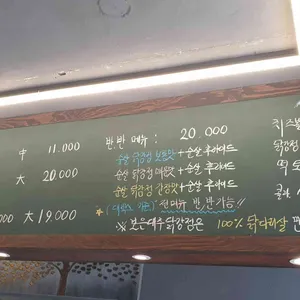 中 11.000
大 20.000
000 大 19.000
반.반 메뉴 : 20.000
순살 닭강정 보통맛 + 순살 후라이드
순살 닭강정 매운맛 + 순살 후라이드
순살 닭강정 간장맛 + 순살 후라이드
전메뉴 반,반가능!!
※ 보은대추닭강정은 100% 닭다리살
치즈
닭강정
떡
콜라